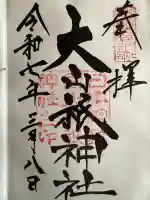 奉拝
大山祇神社
令和七年三月八日